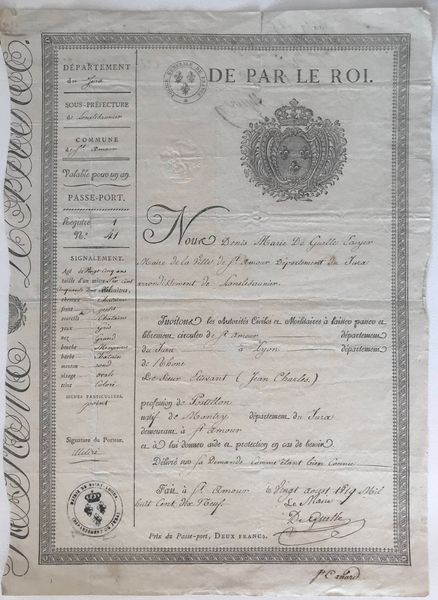 DÉPARTEMENT
du Jura
SOUS-PRÉFECTURE
de Lonslesaunier
COMMUNE
de St Amour
Valable pour un an.
PASSE-PORT.
Registre 1
N.° 41
SIGNALEMENT.
Agé de Vingt cinq ans
taille d'un mètre
cheveux Chatain
front
sourcils Chatain
yeux gris
nez Grand
bouche Moyenne
barbe Chatain
menton rond
visage ovale
teint Coloré
SIGNES PARTICULIERS.
Signature du Porteur.
DE PAR LE ROI.
Nous Denis Marie De Guelle
Maire de la Ville de St Amour Département du Jura
arrondissement de Lonslesaunier.
Invitons les Autorités Civiles et Militaires à laisser passer et
librement circuler de St Amour département
du Jura à Lyon département
de Rhone
Le Sieur (Jean Charles)
profession de Postillon
natif de Mantry département du Jura
demeurant à St Amour
et à lui donner aide et protection en cas de besoin.
Délivré sur sa Demande Comme étant bien Connu
Fait à St Amour le Vingt aout 1819 Mil
huit Cent dix Neuf
Le Maire
De Guelle
Prix du Passe-port, DEUX FRANCS.